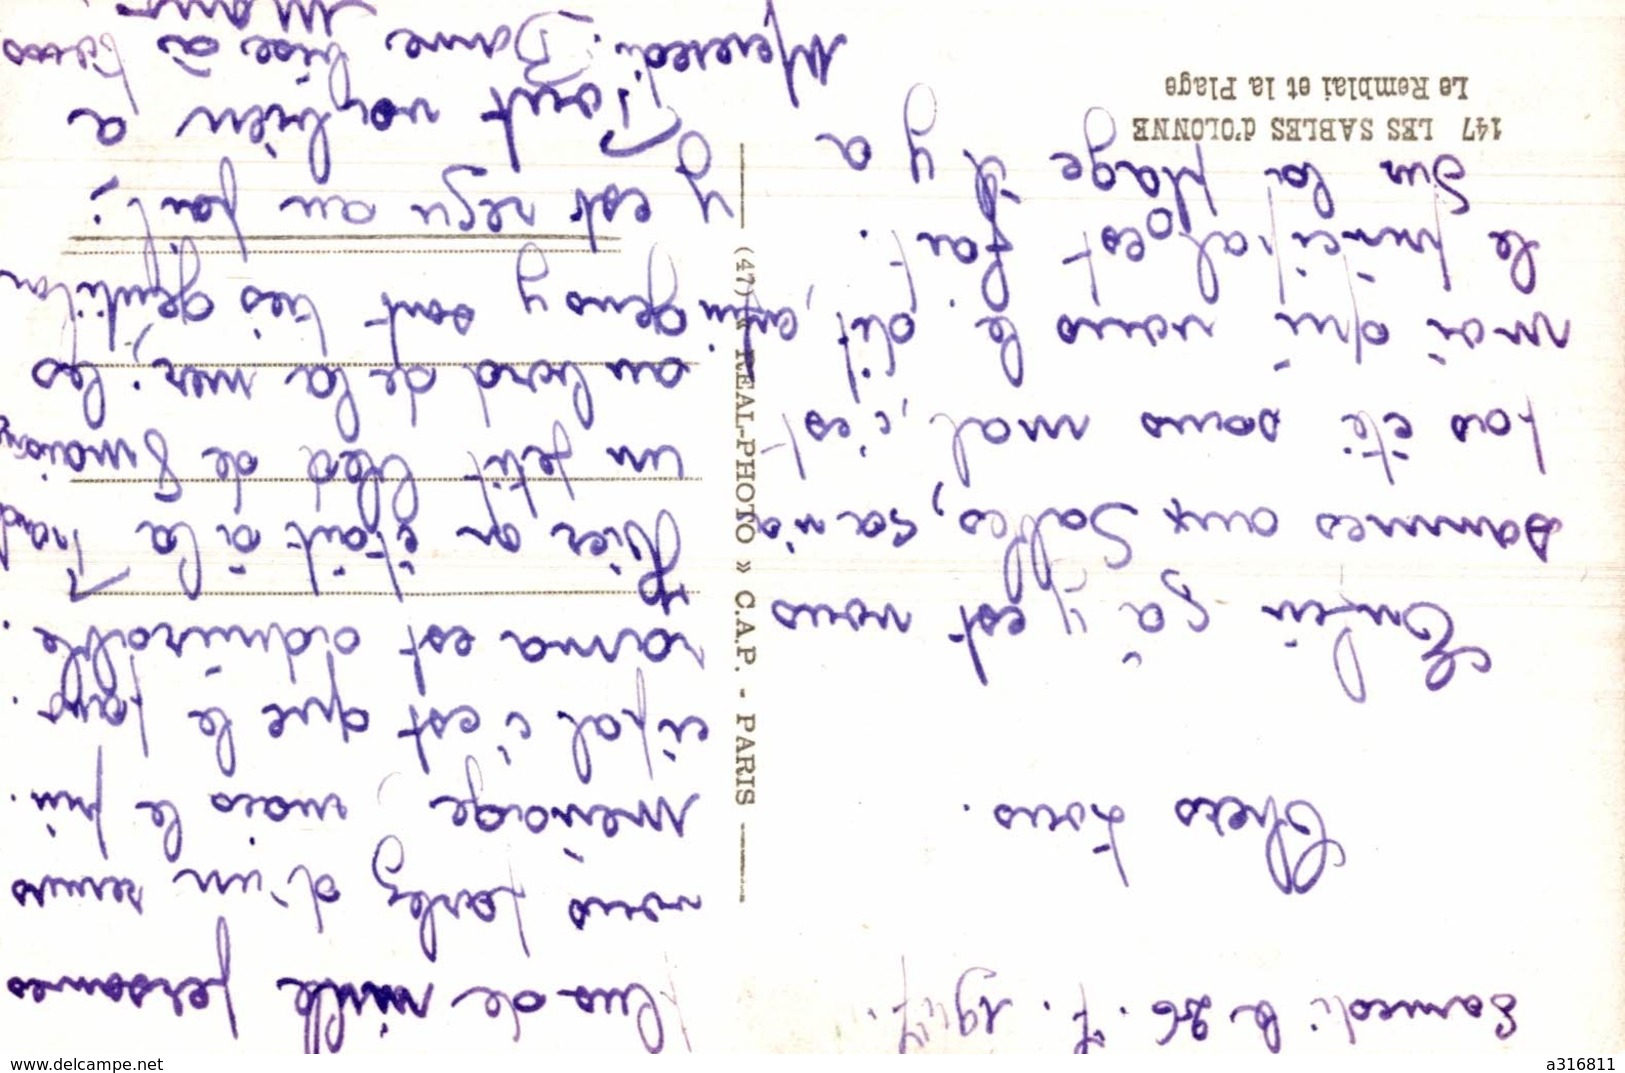 Samedi le 26. 7. 1947.
Chers tous.
Enfin ça y est nous
sommes aux Sables, ça n'a
pas été sans mal, c'est
moi qui vous le dit, enfin
le principal est fait.
Sur la plage il y a
147 LES SABLES d'OLONNE
Le Remblai et la Plage
plus de mille personnes
vous parlez d'un remus
ménage, mais le prin.
cipal c'est que le pano.
rama est admirable.
Hier on était à la
un petit bled de 8 maisons
au bord de la mer. les
gens y sont très gentils, on
y est reçu au poil;
Tout va bien a
Mercredi. Bonne bise à tous
(47) « REAL-PHOTO » C.A.P. - PARIS
www.delcampe.net
a316811